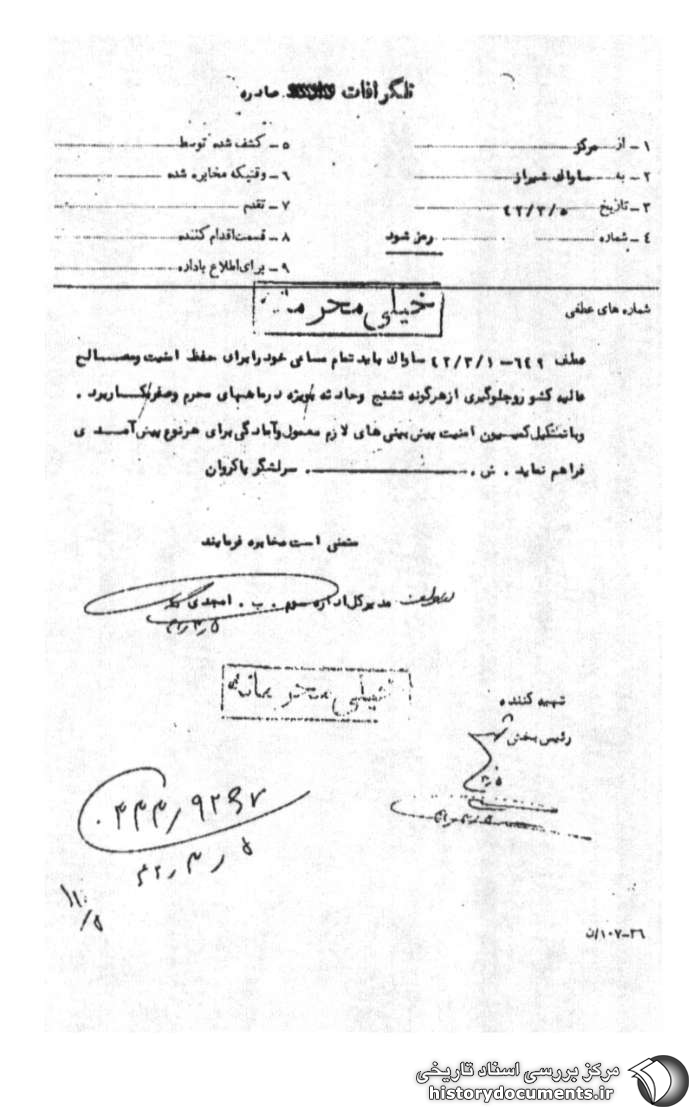 تلگرافات صادره
۱ ـ از مرکز
۲ ـ به ساواک شیراز
۳ ـ تاریخ ۴۲/۳/۵
۴ ـ شماره رمز شود
۵ ـ کشف شده توسط
۶ ـ وقتیکه مخابره شده
۷ ـ تقدیم
۸ ـ قسمت اقدام کننده
۹ ـ برای اطلاع باداره
شماره های عطفی
خیلی محرمانه
عطف ۶۴۹ ـ ۴۲/۳/۱ ساواک باید تمام مساعی خود را برای حفظ امنیت ومصالح
عالیه کشور وجلوگیری ازهرگونه تشنج وحادثه بویژه درماههای محرم وصفر بکار برد .
وباتشکیل کمیسیون امنیت پیش بینی های لازم معمول وآمادگی برای هرنوع پیش آمدی
فراهم نماید . ش . ـــــ . سرلشگر پاکروان
متمنی است مخابره فرمایند
مدیرکل اداره سوم . ب . امجدی
۵ر۳ر۴۲
خیلی محرمانه
تهیه کننده
رئیس بخش
۵ر۳ر۴۲
۱۰۷-۳۶/ن
مرکز بررسی اسناد تاریخی
historydocuments.ir